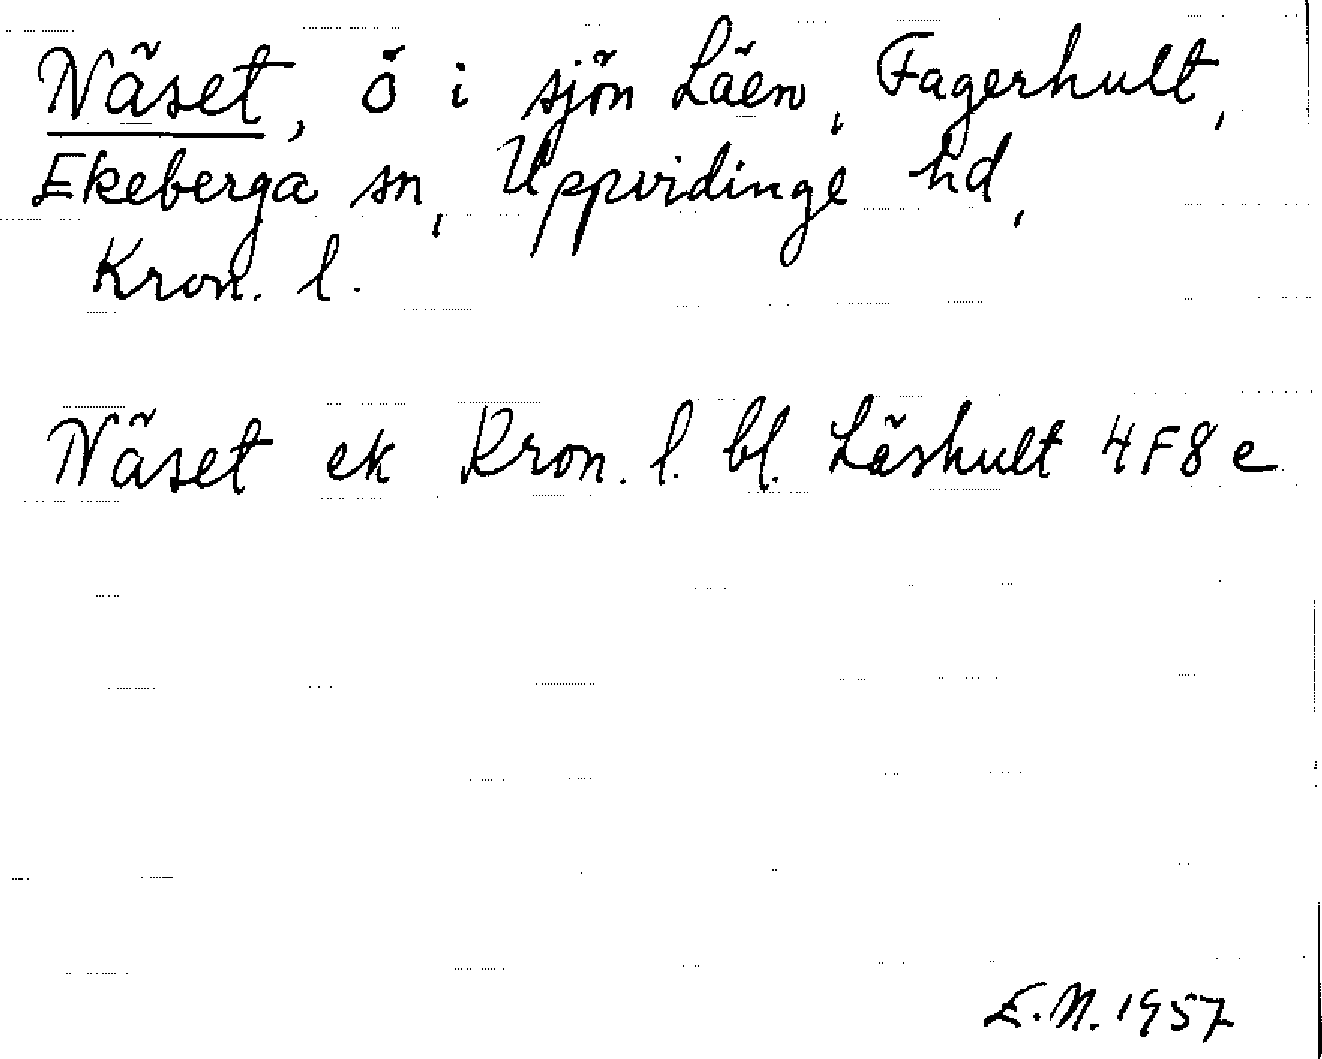 Näset, ö i sjön Läen, Fagerhult,
Ekeberga sn, Uppvidinge hd,
Kron. l.
Näset ek Kron. l. bl. Läshult 4F8e
E.N. 1957